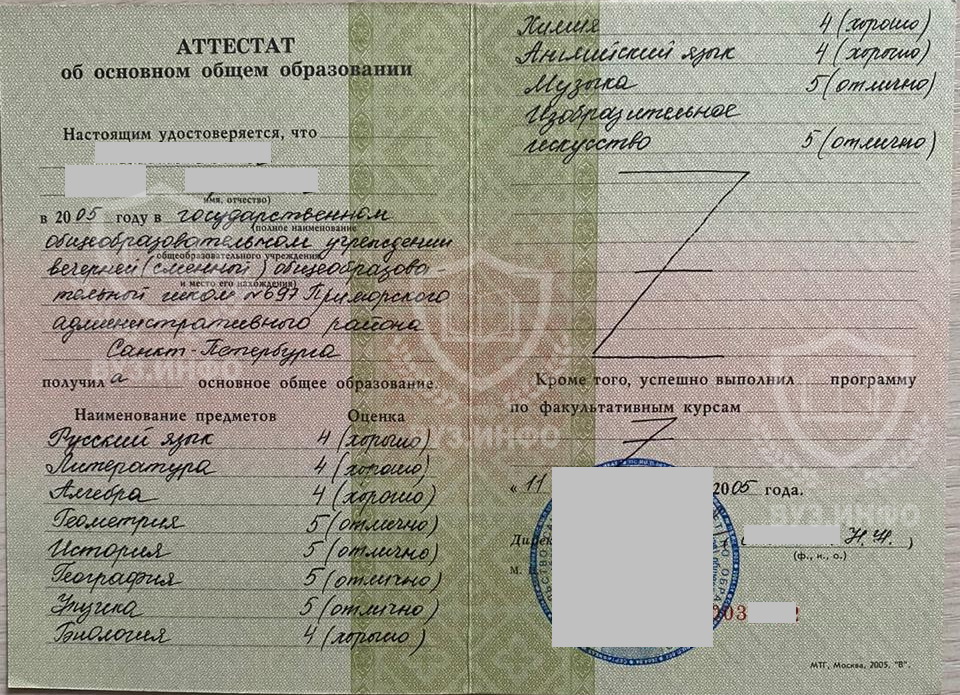 АТТЕСТАТ
об основном общем образовании
Настоящим удостоверяется, что
имя, отчество)
в 2005 году в государственном
(полное наименование
общеобразовательном учреждении
общеобразовательного учреждения
вечерней (сменный) общеобразова-
и место его нахождения)
тельный школ №697 Приморского
административного района
Санкт-Петербурга
получил а основное общее образование.
Наименование предметов Оценка
Русский язык 4 (хорошо)
Литература 4 (хорошо)
Алгебра 4 (хорошо)
Геометрия 5 (отлично)
История 5 (отлично)
География 5 (отлично)
Физика 5 (отлично)
Биология 4 (хорошо)
Химия 4 (хорошо)
Английский язык 4 (хорошо)
Музыка 5 (отлично)
Изобразительное
искусство 5 (отлично)
Кроме того, успешно выполнил программу
по факультативным курсам
« 11 2005 года.
Н.Н. )
(ф., и., о.)
М.
203 2
МТГ, Москва, 2005, "В".
ВУЗ.ИНФО
ВУЗ.ИНФО
ВУЗ.ИНФО